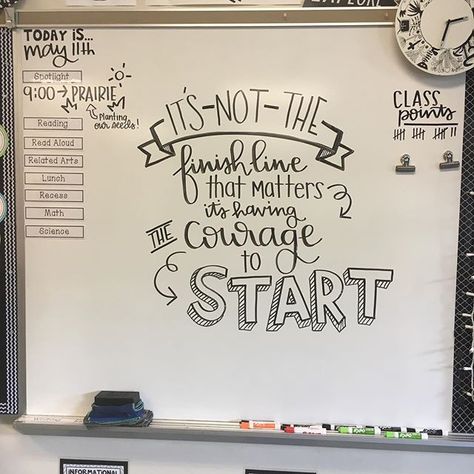 TODAY IS...
May 11th
Spotlight
9:00 → PRAIRIE
Planting our seeds!
Reading
Read Aloud
Related Arts
Lunch
Recess
Math
Science
IT'S-NOT-THE
finish line
that matters
it's having
THE Courage
to
START
CLASS
points